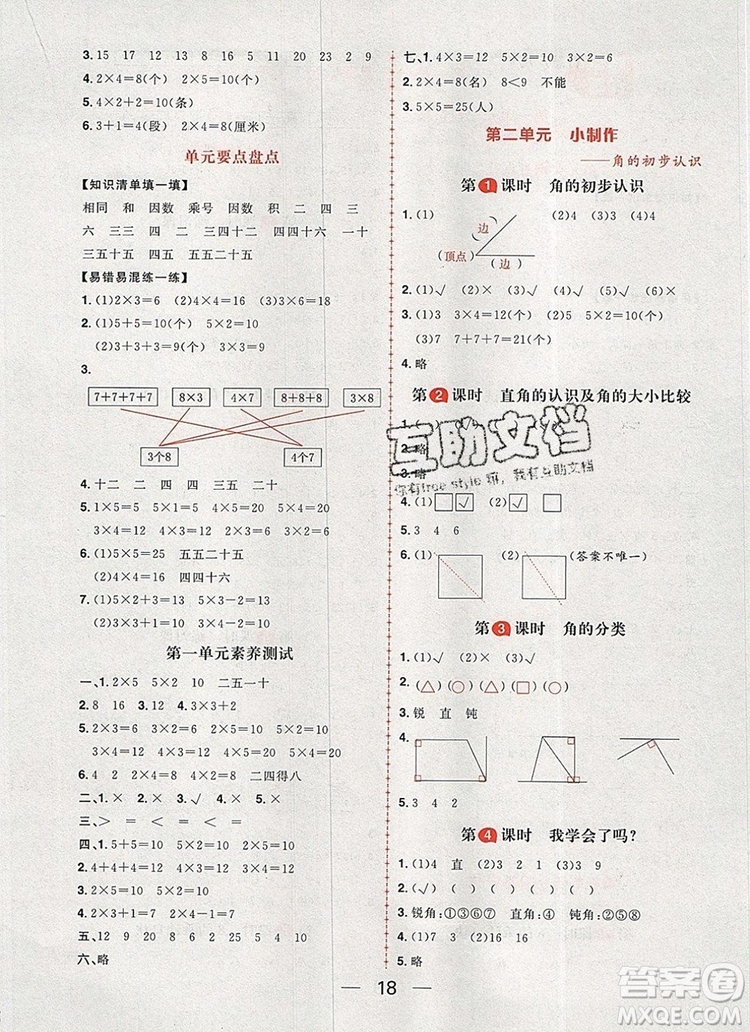 3. 15 17 12 13 6 20 23 2 9
4. 2×4=8(个) 2×5=10(个)
5. 4×2=8(条)
6. 3+1=4(段) 2×4=8(厘米)
单元要点盘点
【知识清单填一填】
相同 和 因数 乘号 因数 积 二 四 三
六 三三 四 二 三十二 四四 三十五 十
三五十五 四五 五五 二十五 五五二十五
【易错易混练一练】
1. (1)2×3=6 (2)4×5=20 (3)3×6=18
2. (1)5+5=10(个) 5×2=10(个)
(2)3+3+3=9(个) 3×3=9(个)
3.
7+7+7+7 8×3 4×7 8+8+8 3×8
3个8 4个7
4. 十二 二 四 四 三 四 二十
5. 1×5=5 2×5=10 3×5=15
4×5=20 5×5=25
6. (1)5×5=25 五五二十五
(2)4×4=16 四四十六
7. (1)5×2+3=13 5×3-2=13
(2)3×3+1=10 3×4-2=10
第一单元素养测试
一、1. 2×5 5×2 10 二五一十
2. 7 5 4 3. 4 3×3+2
5. 2×3=6 3×2=6 2×5=10 5×2=10
3×4=12 4×3=12 4×5=20 5×4=20
6. 4 2 2×4 4×2 二四得八
二、1. × 2. × 3. √ 4. × 5. ×
三、> = < = < <
四、1. 5+5=10 5×2=10 2×5=10
2. 4+4+4=12 3×4=12 4×3=12
3. 2×3+1=7 2×4-1=7
五、12 9 20 8 6 2 10 15 9 16
六、略
七、1. 4×3=12 5×2=10 3×2=6
2. 2×4=8(名) 8<9 不能
3. 5×5=25(人)
第二单元 小制作
——角的初步认识
第1课时 角的初步认识
1. (1) (2)4 (3)4 (4)4
边
(顶点)
(边)
2. (1)√ (2)× (3)√ (4)√ (5)√ (6)×
3. (1)3 3×4=12(个) (2)5 2×5=10(个)
(3)7 7+7+7=21(个)
4. 略
第2课时 直角的认识及角的大小比较
2. 略
3. 略
互助文档
4. (1)□ √ (2)√ □
5. 3 4 6
6. (1) (2) (答案不唯一)
第3课时 角的分类
1. (1)√ (2)× (3)√
2. (△)(○)(△)(□)(○)
3. 锐 直 钝
4.
5. 3 4 2
第4课时 我学会了吗?
1. (1)4 直 (2)3 1 2 (3)3 9
2. (√) ( ) ( ) ( ) ( ) (√)
3. 锐角:①③⑥⑦ 直角:④ 钝角:②⑤⑧
4. (1)7 3 (2)16 16
5. 略
18
答案圈
MXQE.COM